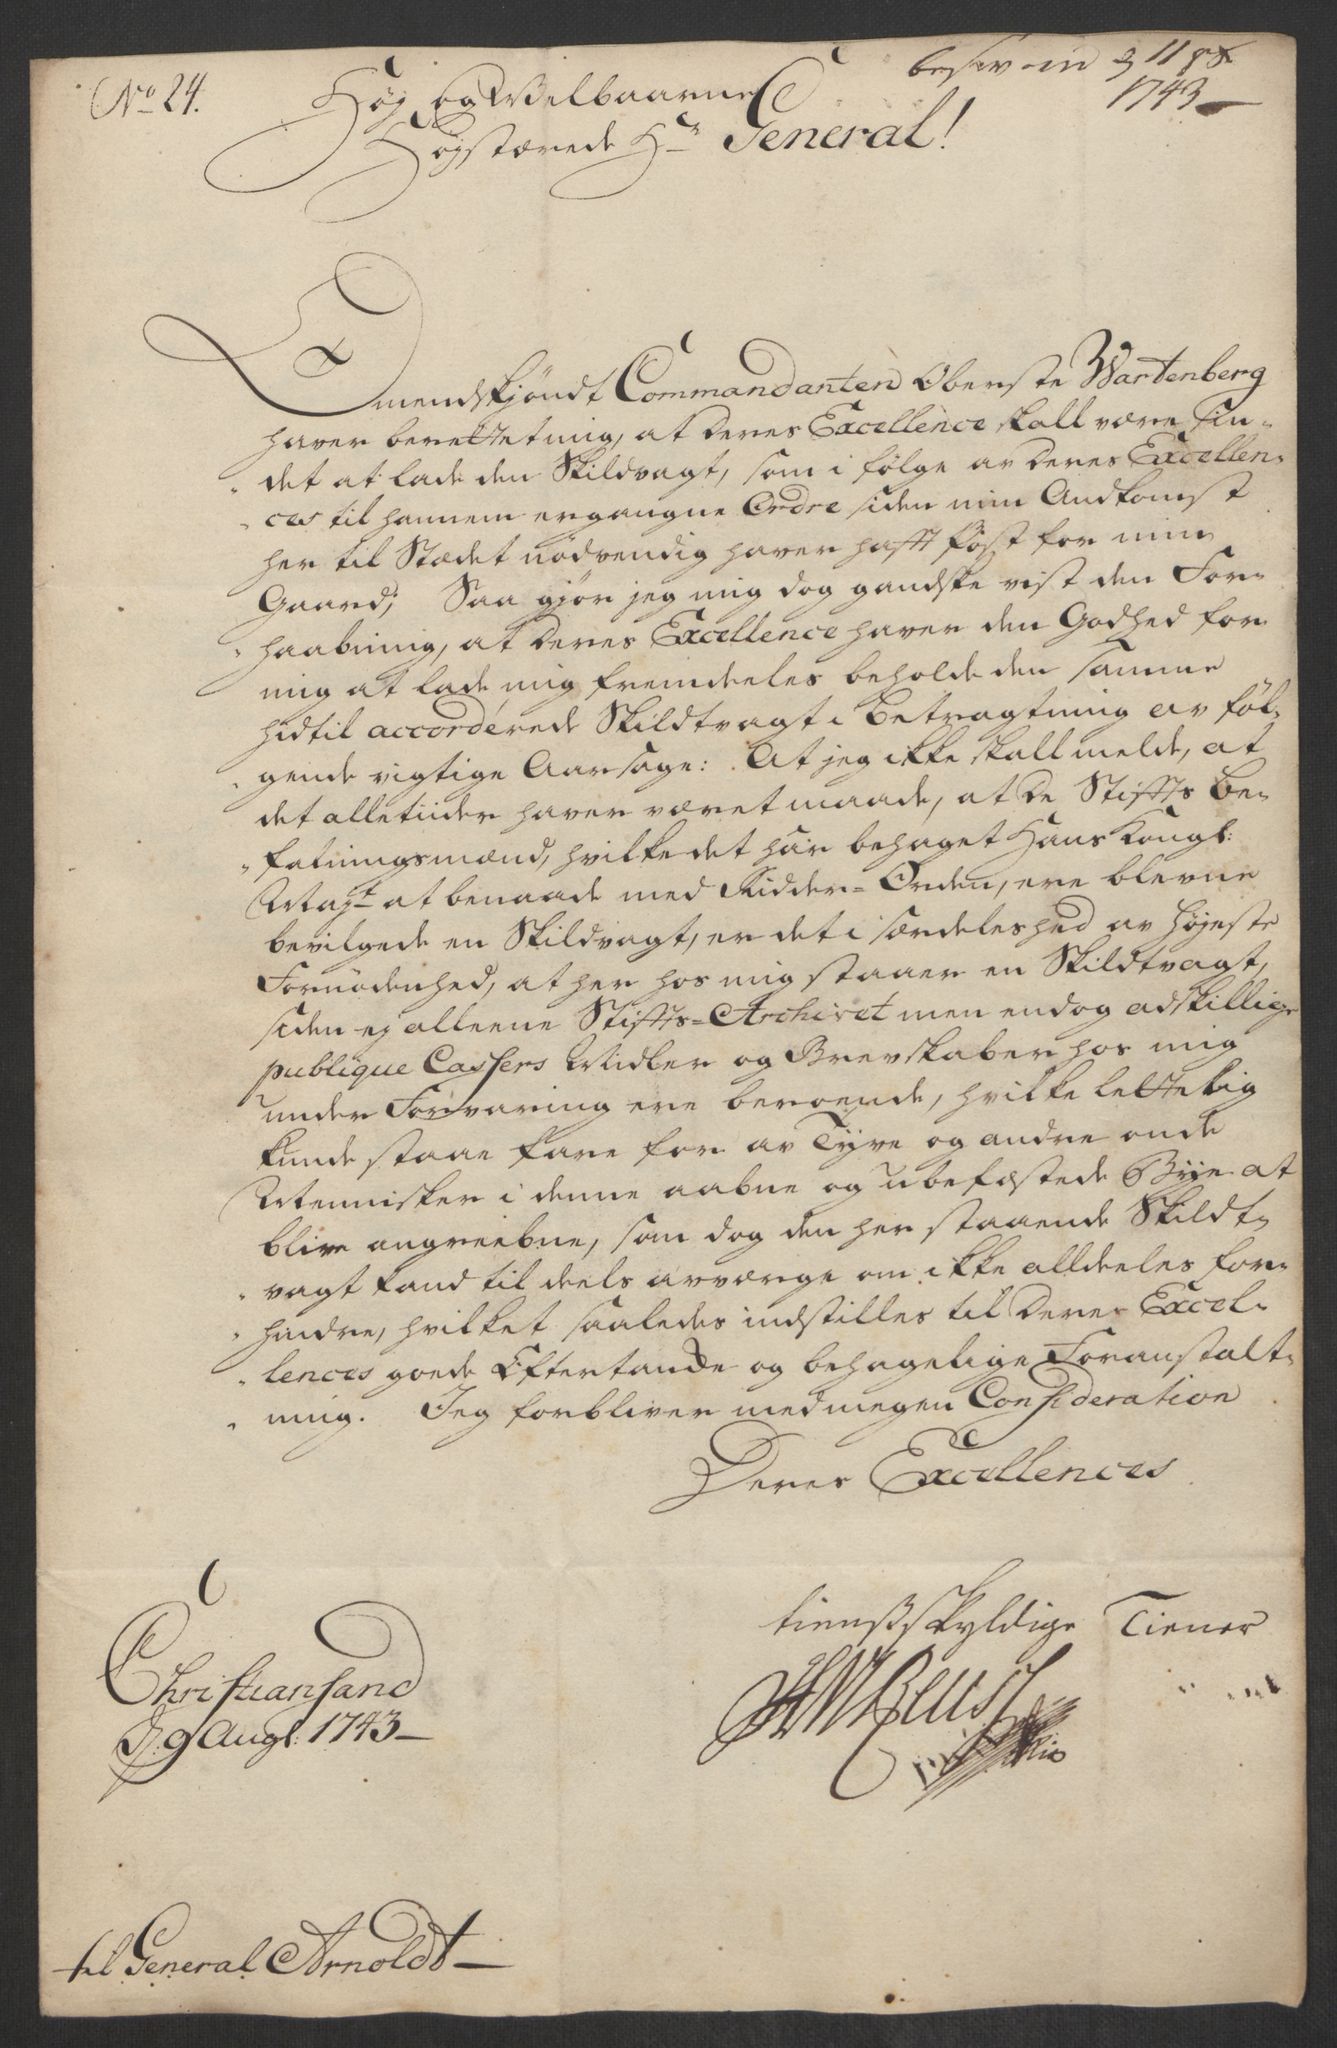 No 24.
besv in 3 11 pt
1743
Høy og Welbaarne
Høystærede Hr General!
Omendskjøndt Commandanten Oberste Wartenberg
haver berettet mig, at Deres Excellence skall være sin-
det at lade den Skildvagt, som i følge av Deres Excellen-
ces til hannem ergangne Ordre siden min Ankomst
her til Stædet nødvendig haver hafft post for min
Gaard; Saa gjør jeg mig dog gandske vist den For-
haabning, at Deres Excellence haver den Godhed for
mig at lade mig fremdeeles beholde den samme
hidtil accorderede Skildtvagt i betragtning av føl-
gende vigtige Aarsage: At jeg ikke skall melde, at
det alletiider haver været maade, at De Stiffts Be-
falningsmænd, hvilke det har behaget Hans Kongl:
Mayt at benaade med Ridder-Orden, ere blevne
bevilgede en Skildvagt, er det i særdeleshed av højeste
Fornødenhed, at her hos mig staaer en Skildtvagt,
siden ej alleene Stiffts-Archivet men endog adskillige
publique Cassers Midler og Brevskaber hos mig
under Forvaring ere beroende, hvilke lettelig
kunde staae fare for av Tyve og andre onde
Mennisker i denne aabne og ubefæstede Bye at
blive angreebne, som dog den her staaende Skildt-
vagt kand til deels avværge om ikke alldeeles for-
hindre, hvilket saaledes indstilles til Deres Excel-
lences goede Eftertanke og behagelige Foranstalt-
ning. Jeg forbliver med megen Consideration
Deres Excellences
tienstskyldige Tiener
Christiansand
D. 9 Augt: 1743
til General Arnoldt